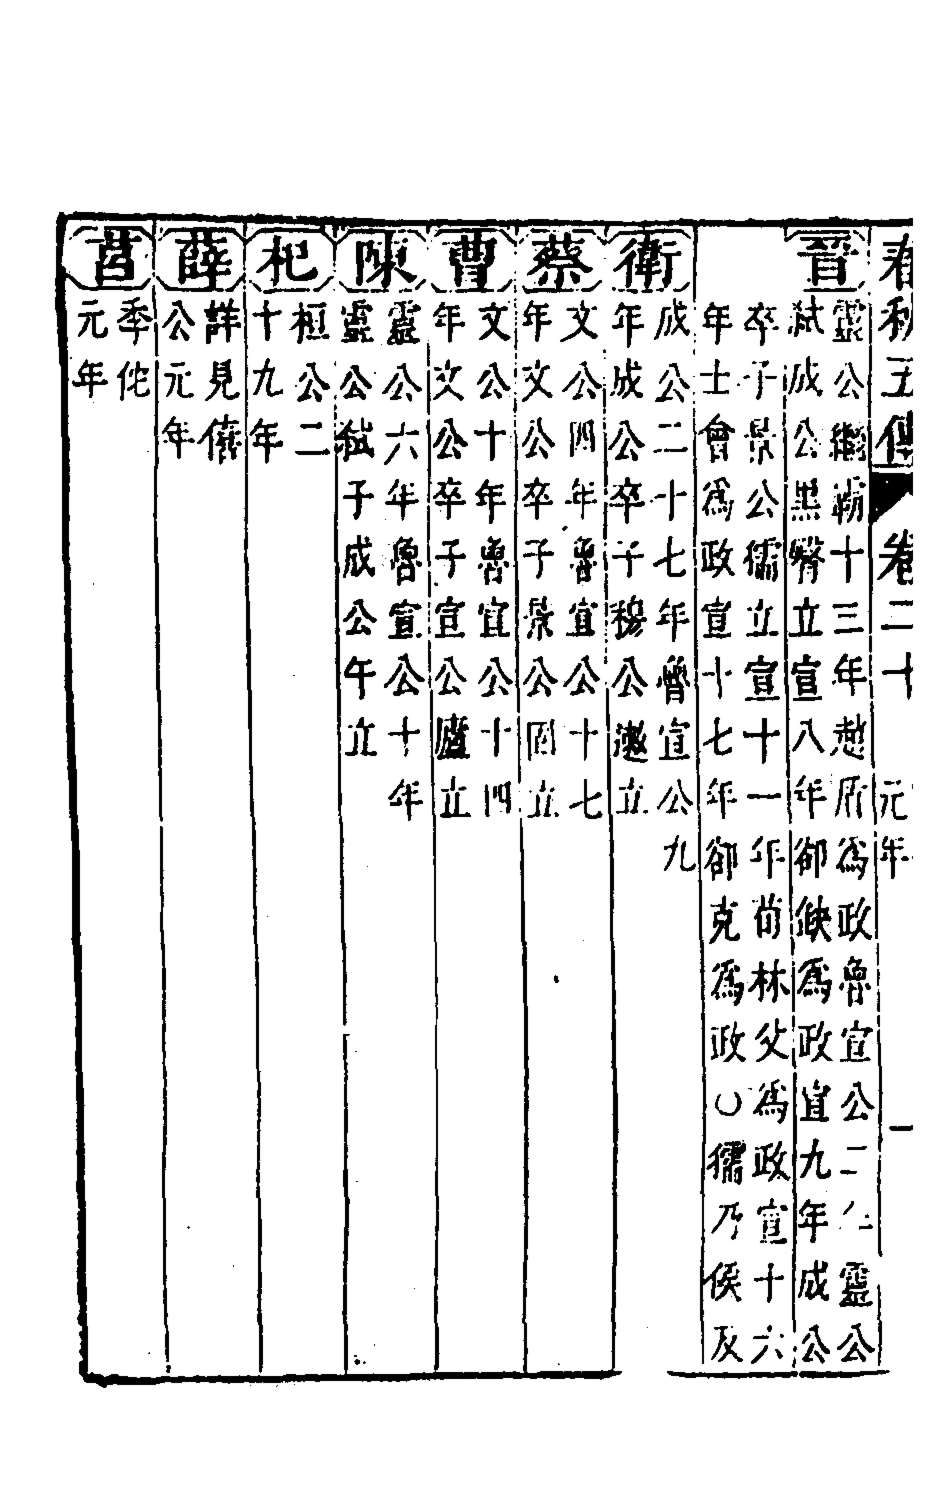 春秋五傳 卷二十 元年 一
晉
靈公繼霸十三年趙盾爲政魯宣公二年靈公
弑成公黑臀立宣八年郤缺爲政宣九年成公
卒子景公獳立宣十一年荀林父爲政宣十六
年士會爲政宣十七年郤克爲政○獳乃侯反
衛
成公二十七年魯宣公九
年成公卒子穆公遬立
蔡
文公四年魯宣公十七
年文公卒子景公固立
曹
文公十年魯宣公十四
年文公卒子宣公廬立
陳
靈公六年魯宣公十年
靈公弑子成公午立
杞
桓公二
十九年
薛
詳見僖
公元年
莒
季佗
元年